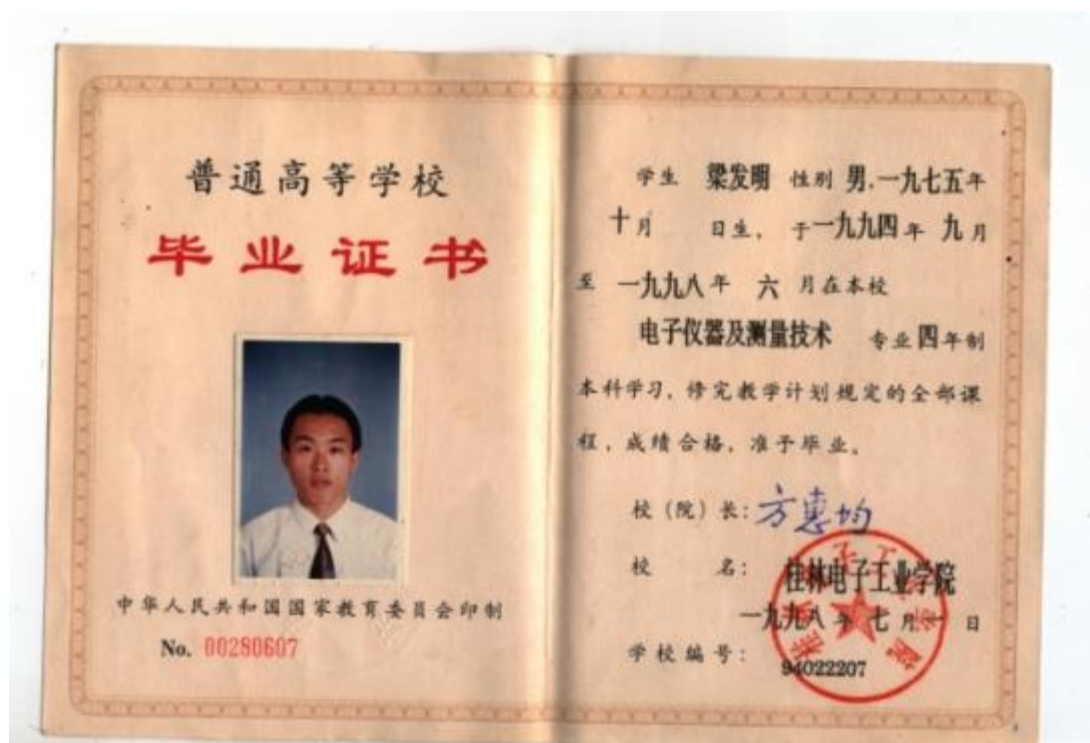 普通高等学校
毕业证书
中华人民共和国国家教育委员会印制
No. 00280607
学生 梁发明 性别 男,一九七五年
十月 日生, 于一九九四年 九月
至 一九九八年 六 月在本校
电子仪器及测量技术 专业四年制
本科学习, 修完教学计划规定的全部课
程, 成绩合格, 准予毕业。
校(院)长: 方惠均
校 名: 桂林电子工业学院
一九九八年七月一日
学校编号: 94022207